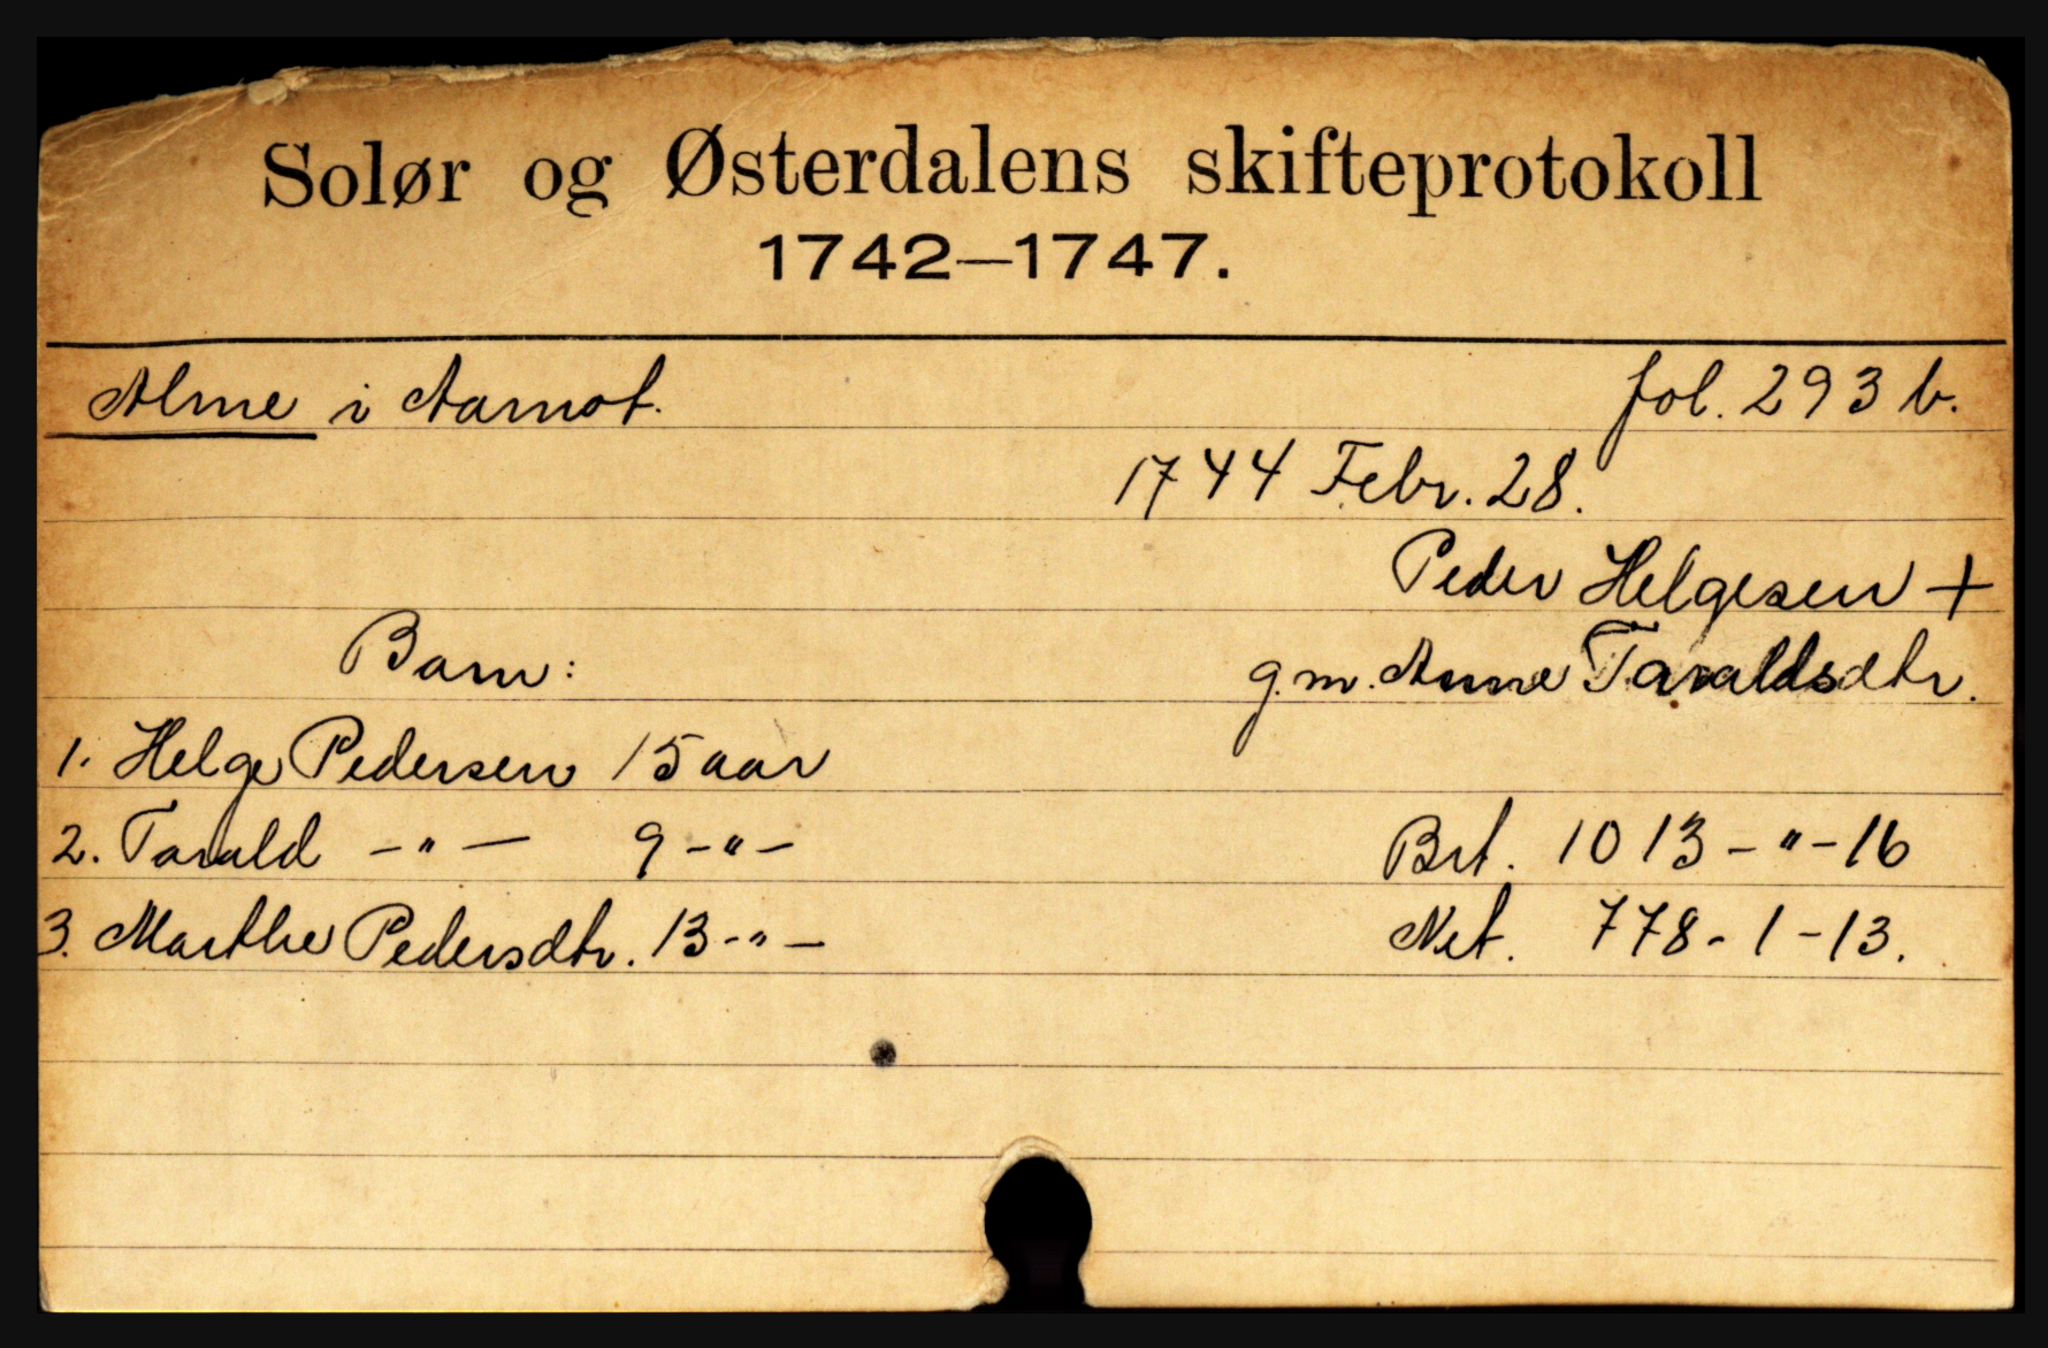 Solør og Østerdalens skifteprotokoll
1742—1747.
Alme i Aamot. fol. 293 b.
1744 Febr. 28.
Peder Helgesen +
Barn: g.m. Anne Taraldsdtr.
1. Helge Pedersen 15 aar
2. Tarald -"- 9 -"- Brt. 1013 - " - 16
3. Marthe Pedersdtr. 13 -"- Net. 778 - 1 - 13.